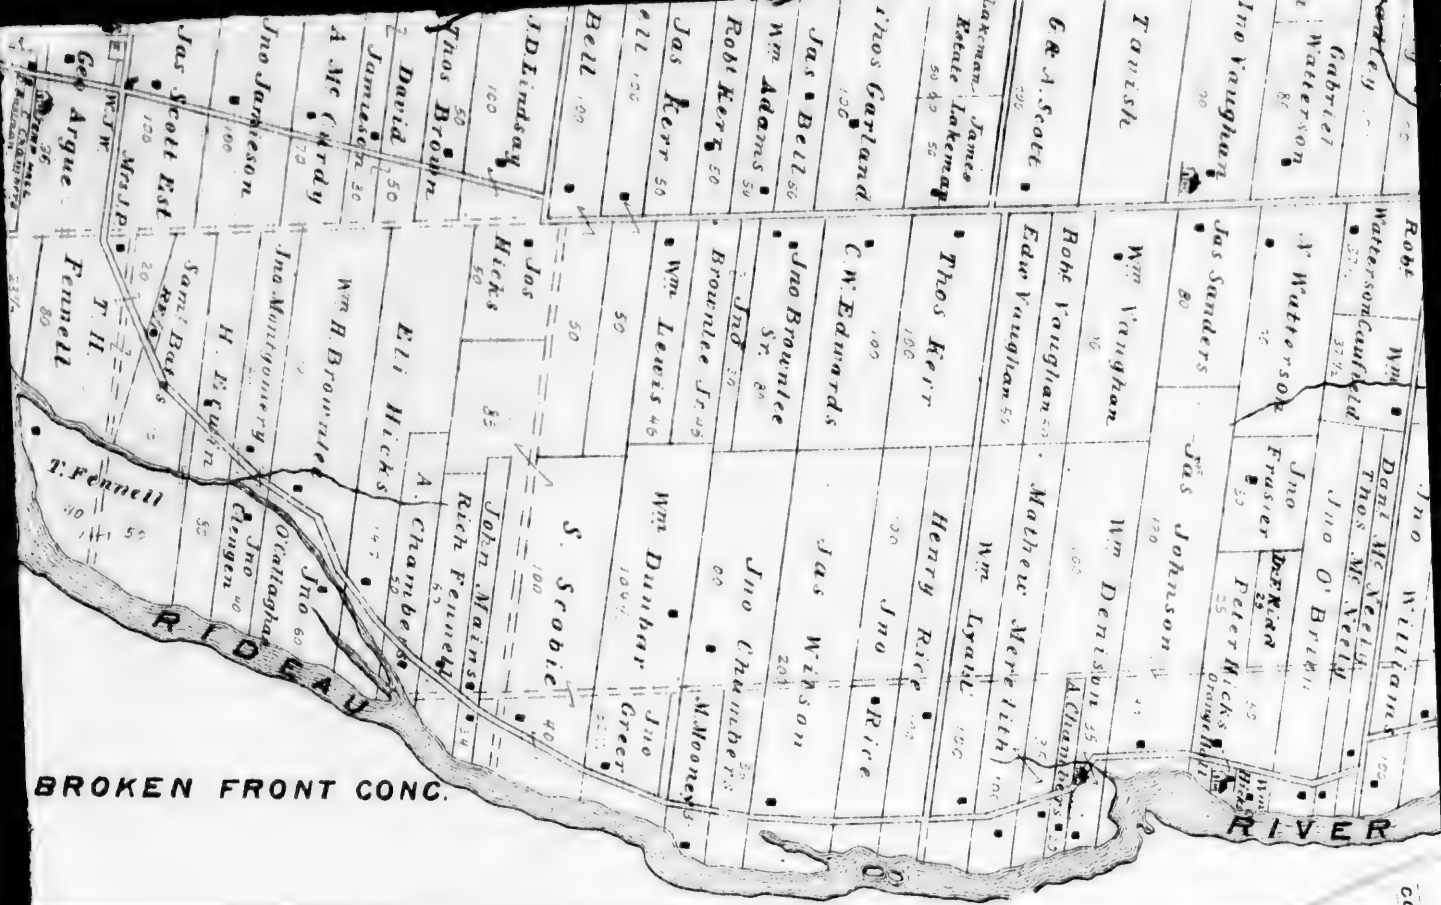 Geo Argue
96
W.J.W.
Mrs. J.P.
Jas Scott Est
100
Jno Jamieson
100
A Mc Curdy
70
Jamieson 80
David 50
Thos Brown
50
J.D. Lindsay
100
Bell
100
ell 100
Jas Kerr 50
Robt Kerr 50
Wm Adams
50
Jas Bell 50
Thos Garland
100
Lakeman
Estate
50
Jamie
Lakeman
50
G. & A. Scott
100
Tavish
Jno Vaughan
90
Gabriel
Waterson
80
Fennell
80
T. H.
20
Saml Bates
H. Eguhn
Jno Montgomery
Wm H. Brownlee
Eli Hicks
147
Jos
Hicks
50
85
50
50
Wm Lewis 46
Brownlee Jr. 45
Jno
30
Jno Brownlee
Sr. 80
C. W. Edwards
100
Thos Kerr
100
Edw Vaughan 50
Robt Vaughan 50
Wm Vaughan
90
Jas Sanders
80
N Watterson
90
Robt
Watterson
37½
Wm
Caufield
37½
T. Fennell
40
50
50
Jno
Clengen 40
O'Callaghan
Jno 60
A. Chambers
50
Rich Fennell
60
John Mains
34
S. Scobie
100
40
Wm Dunbar
100
Jno
Greer
M. Mooney
Jno Chumbers
00
Jas Wilson
200
Jno Rice
100
Henry Rice
100
Wm Lyall
100
Mathew Meredith
100
Wm Denison 55
100
A. Chambers
Jas Johnson
120
Jno
Frasier
50
Dr. F. Kidd
25
Peter Hicks
25
50
Orange Hall
Wm
Hicks
Jno O'Brien
Thos Mc Neely
Danl Mc Neely
Jno Williams
100
RIDEAU
RIVER
BROKEN FRONT CONC.